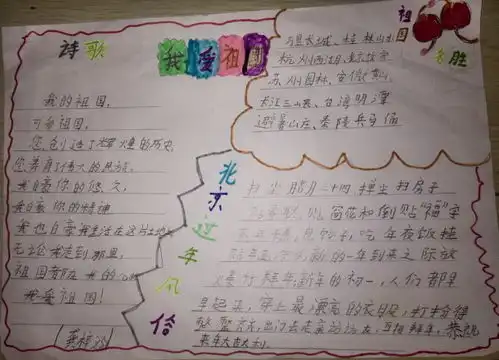 诗歌
我爱祖国
我的祖国,
可爱祖国,
您创造了辉煌的历史,
您养育了伟大的民族。
我自豪你的悠久,
我自豪你的精神
我也自豪我生活在这片土地
无论我走到那里,
祖国都在我的心
我爱祖国!
祖国
名胜
万里长城、桂林山水
杭州西湖、北京故宫
苏州园林、安徽黄山
长江三峡、日月潭
避暑山庄、秦陵兵马俑
北京过年风俗
扫尘腊月二十四掸尘扫房子
贴窗花和倒贴“福”字
吃年夜饭
新的一年到来之际放
爆竹拜年新年的初一,人们都早
早起来,穿上最漂亮的衣服,打扮得
出门去走亲访友,互相拜年,恭祝
来年大吉大利。